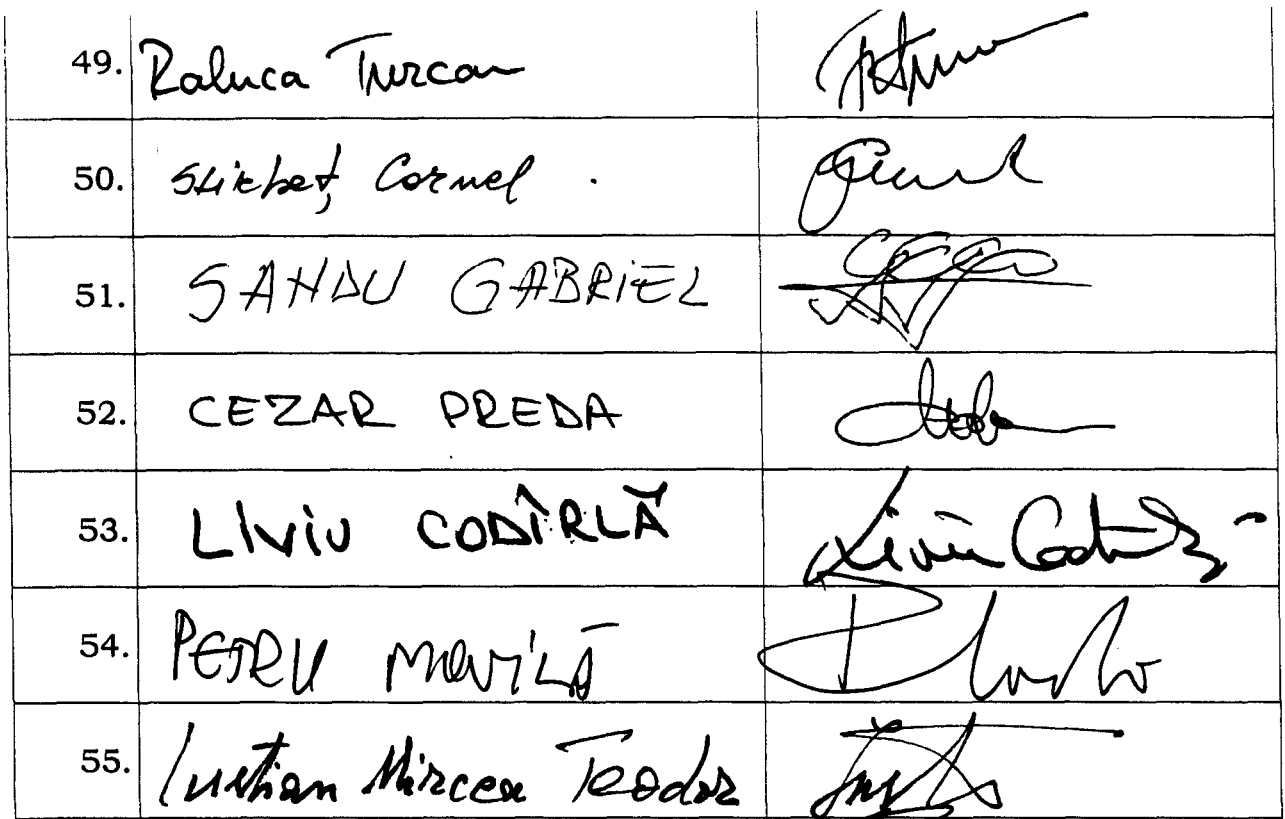 49. Raluca Turcan
50. Știrbeț Cornel
51. SANDU GABRIEL
52. CEZAR PREDA
53. LIVIU CODÎRLĂ Liviu Codîrlă
54. PETRU MOVILĂ
55. Iustian Mircea Teodor